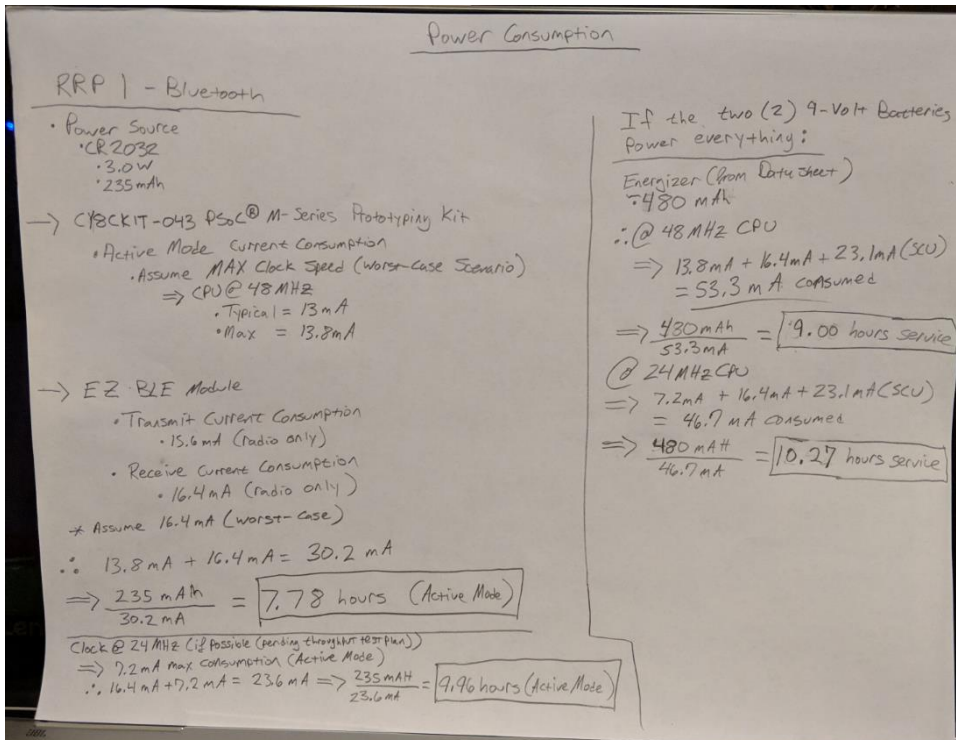 Power Consumption
RRP 1 - Bluetooth
• Power Source
• CR2032
• 3.0W
• 235mAh
→ CY8CKIT-043 PSoC® M-Series Prototyping Kit
• Active Mode Current Consumption
• Assume MAX Clock Speed (worst-case Scenario)
⇒ CPU @ 48MHZ
• Typical = 13mA
• Max = 13.8mA
→ EZ-BLE Module
• Transmit Current Consumption
• 15.6mA (radio only)
• Receive Current Consumption
• 16.4mA (radio only)
* Assume 16.4mA (worst-case)
∴ 13.8mA + 16.4mA = 30.2 mA
⇒ 235 mAh / 30.2 mA = 7.78 hours (Active Mode)
Clock @ 24MHZ (if possible (pending throughput test plan))
⇒ 7.2mA max consumption (Active Mode)
∴ 16.4mA + 7.2mA = 23.6mA ⇒ 235mAH / 23.6mA = 9.96 hours (Active Mode)
If the two (2) 9-Volt Batteries
Power everything:
Energizer (from Data sheet)
480 mAh
∴ @ 48MHZ CPU
⇒ 13.8mA + 16.4mA + 23.1mA (SCU)
= 53.3 mA consumed
⇒ 480mAh / 53.3mA = 9.00 hours service
@ 24MHZ CPU
⇒ 7.2mA + 16.4mA + 23.1mA (SCU)
= 46.7 mA consumed
⇒ 480mAH / 46.7mA = 10.27 hours service